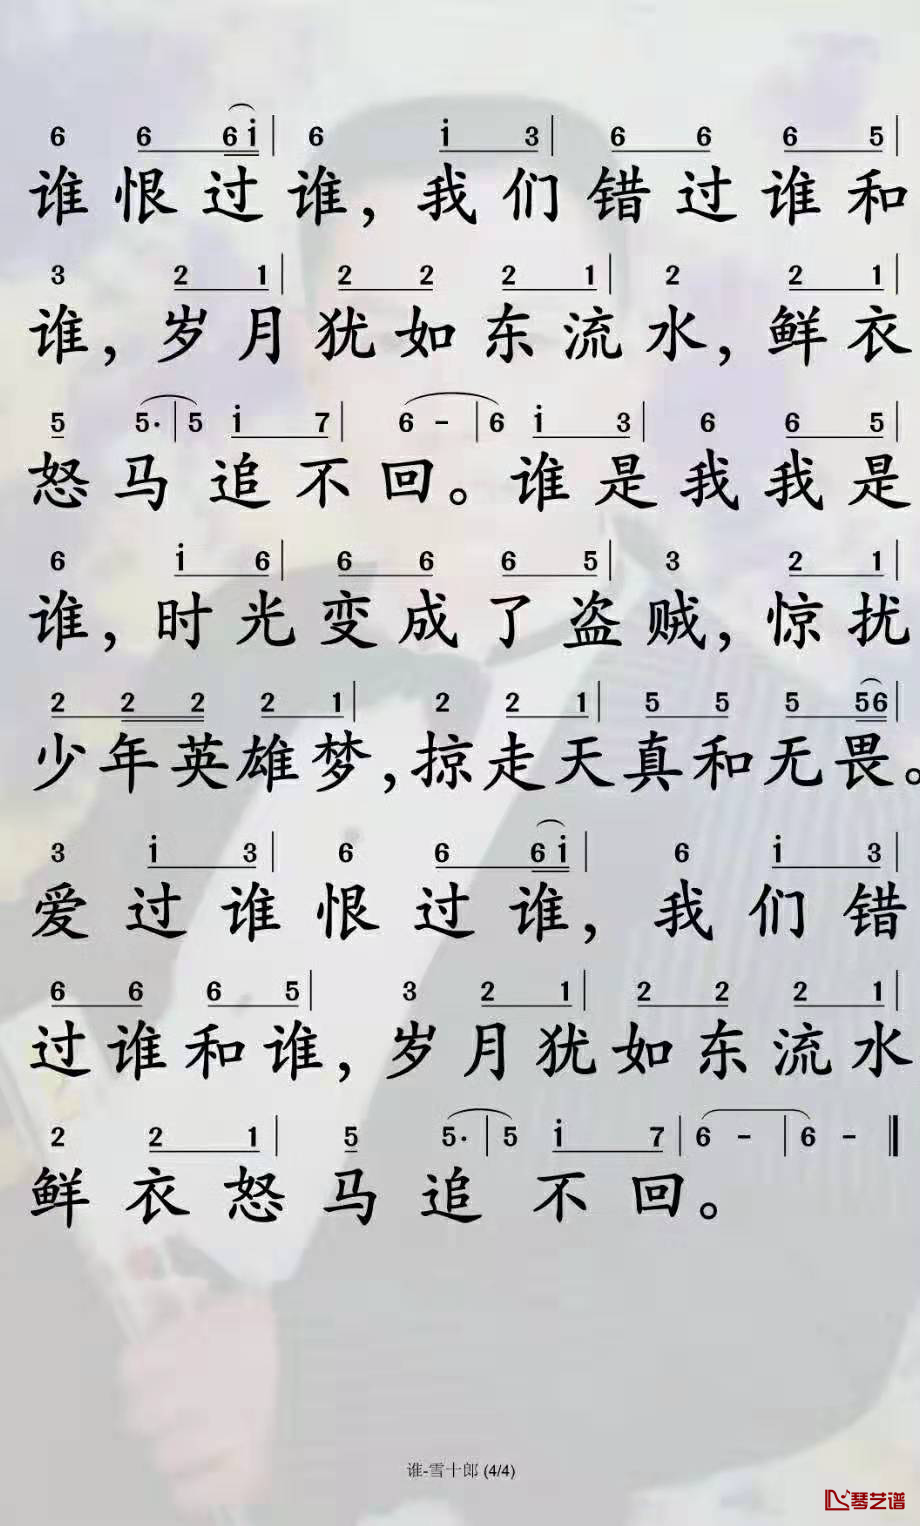 6 6 6 i | 6 i 3 | 6 6 6 5 |
谁恨过谁，我们错过谁和
3 2 1 | 2 2 2 1 | 2 2 1 |
谁，岁月犹如东流水，鲜衣
5 5· | 5 i 7 | 6 - | 6 i 3 | 6 6 5 |
怒马追不回。谁是我我是
6 i 6 | 6 6 6 5 | 3 2 1 |
谁，时光变成了盗贼，惊扰
2 2 2 2 1 | 2 2 1 | 5 5 5 5 6 |
少年英雄梦，掠走天真和无畏。
3 i 3 | 6 6 6 i | 6 i 3 |
爱过谁恨过谁，我们错
6 6 6 5 | 3 2 1 | 2 2 2 1 |
过谁和谁，岁月犹如东流水
2 2 1 | 5 5· | 5 i 7 | 6 - | 6 - ‖
鲜衣怒马追不回。
谁-雪十郎 (4/4)
琴艺谱